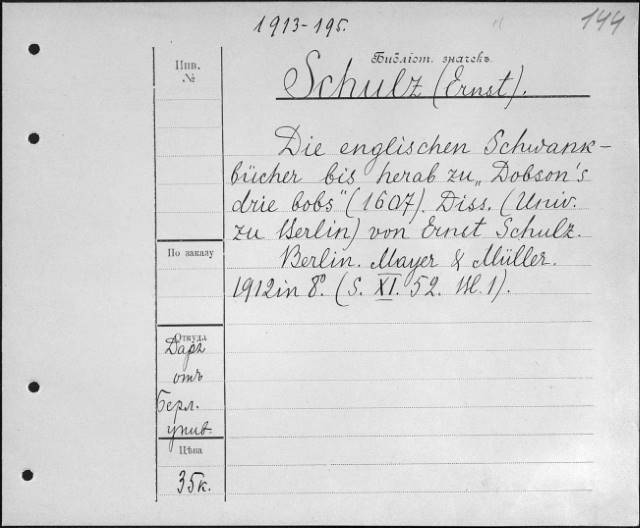 1913-195.
144
Инв.
№
Библіот. значекъ
Schulz (Ernst).
Die englischen Schwank-
bücher bis herab zu „Dobson's
drie bobs" (1607). Diss. (Univ.
zu Berlin) von Ernst Schulz.
По заказу
Berlin. Mayer & Müller.
1912 in 8° (S. XI. 52. Bl. 1).
Откуда
Даръ
отъ
Берл.
унив.
Цѣна
35к.